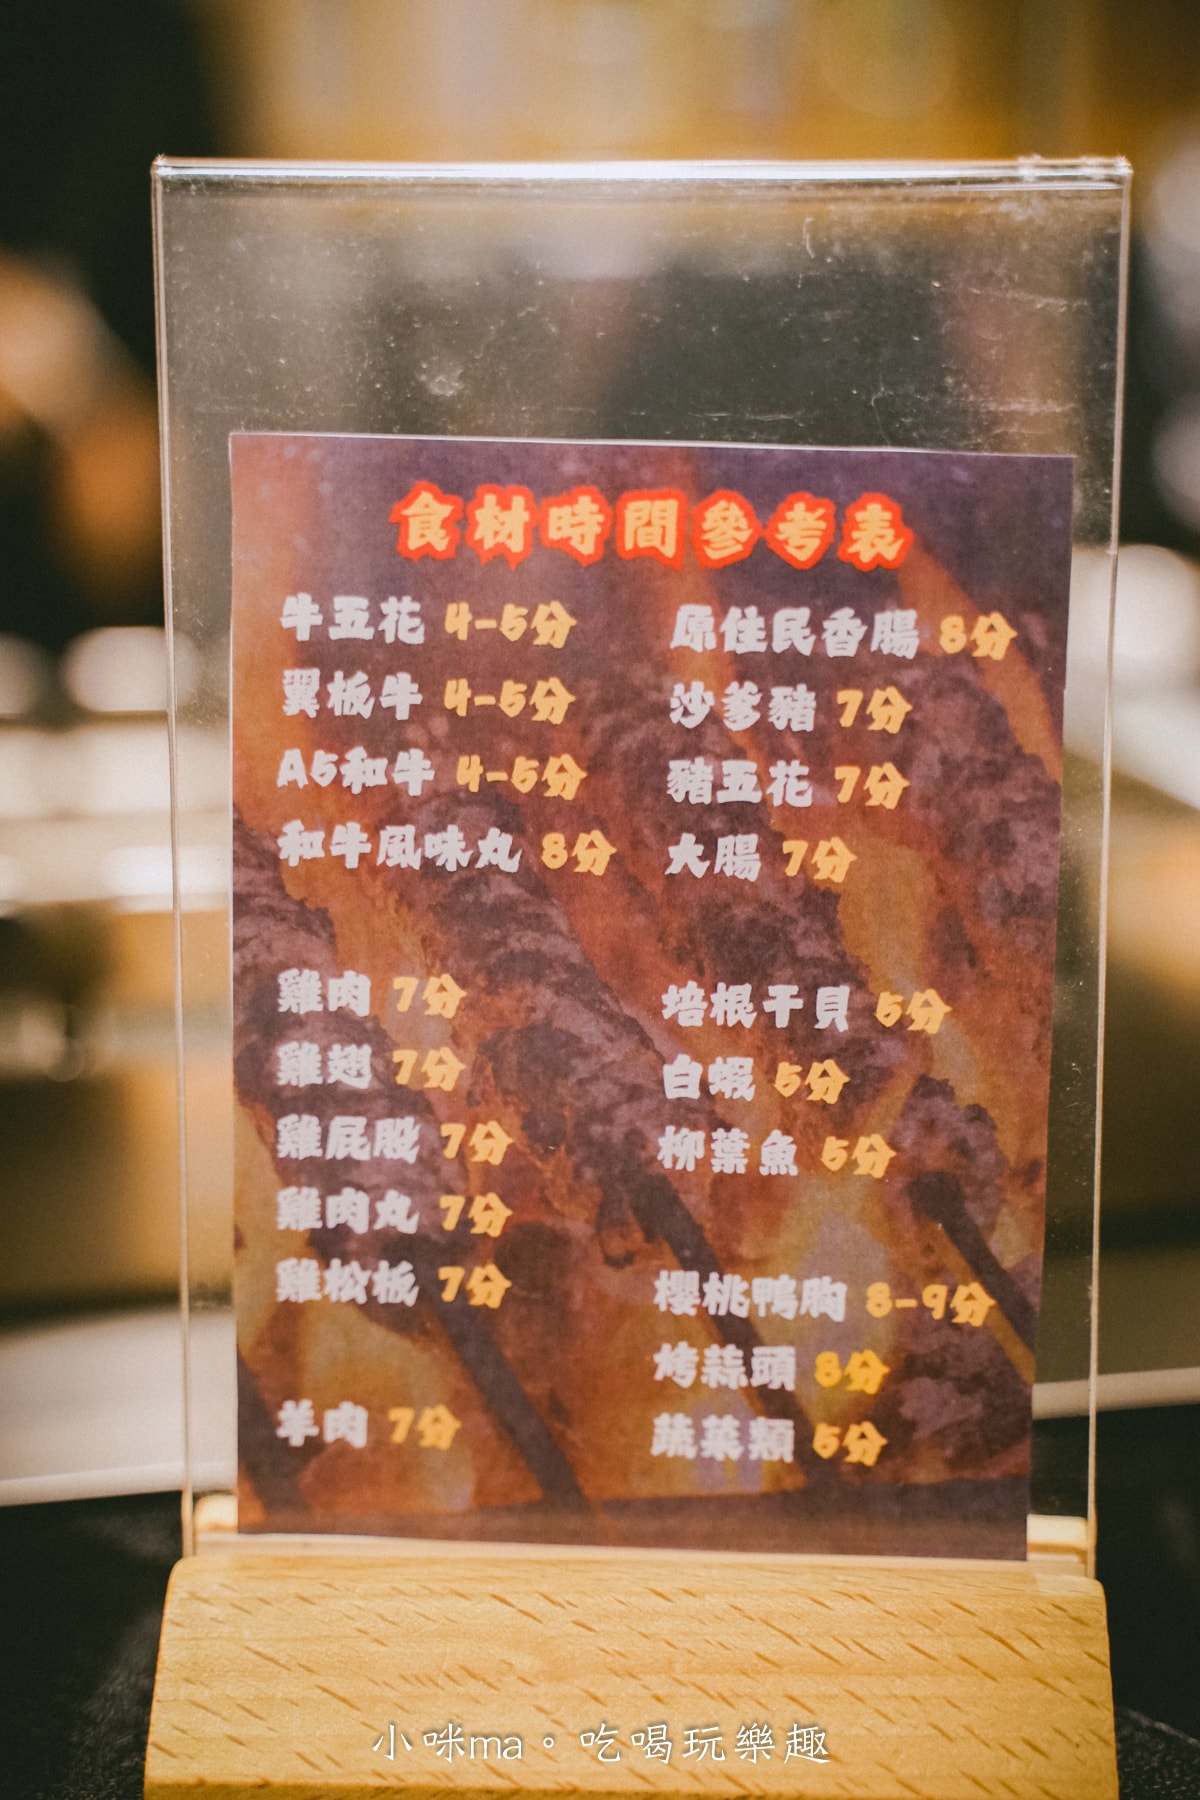 食材時間參考表
牛五花 4-5分
翼板牛 4-5分
A5和牛 4-5分
和牛風味丸 8分
雞肉 7分
雞翅 7分
雞屁股 7分
雞肉丸 7分
雞松板 7分
羊肉 7分
原住民香腸 8分
沙爹豬 7分
豬五花 7分
大腸 7分
培根干貝 5分
白蝦 5分
柳葉魚 5分
櫻桃鴨胸 8-9分
烤蒜頭 8分
蔬菜類 5分
小咪ma。吃喝玩樂趣